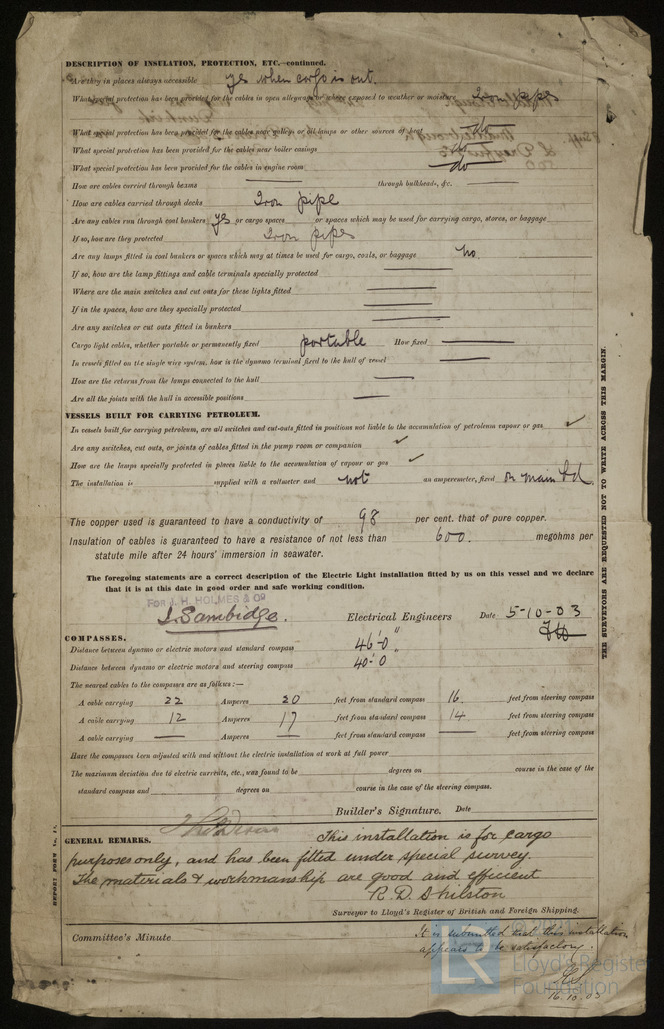 DESCRIPTION OF INSULATION, PROTECTION, ETC.—continued.
Are they in places always accessible yes when cargo is out.
What special protection has been provided for the cables in open alleyways or where exposed to weather or moisture Iron pipes
What special protection has been provided for the cables near galleys or oil lamps or other sources of heat do
What special protection has been provided for the cables near boiler casings do
What special protection has been provided for the cables in engine room do
How are cables carried through beams — through bulkheads, &c. —
How are cables carried through decks Iron pipe
Are any cables run through coal bunkers yes or cargo spaces or spaces which may be used for carrying cargo, stores, or baggage
If so, how are they protected Iron pipes
Are any lamps fitted in coal bunkers or spaces which may at times be used for cargo, coals, or baggage No.
If so, how are the lamp fittings and cable terminals specially protected —
Where are the main switches and cut outs for these lights fitted —
If in the spaces, how are they specially protected —
Are any switches or cut outs fitted in bunkers —
Cargo light cables, whether portable or permanently fixed portable How fixed —
In vessels fitted on the single wire system, how is the dynamo terminal fixed to the hull of vessel —
How are the returns from the lamps connected to the hull —
Are all the joints with the hull in accessible positions —
VESSELS BUILT FOR CARRYING PETROLEUM.
In vessels built for carrying petroleum, are all switches and cut-outs fitted in positions not liable to the accumulation of petroleum vapour or gas ✓
Are any switches, cut outs, or joints of cables fitted in the pump room or companion ✓
How are the lamps specially protected in places liable to the accumulation of vapour or gas ✓
The installation is supplied with a voltmeter and not an amperemeter, fixed on main bd.
The copper used is guaranteed to have a conductivity of 98 per cent. that of pure copper.
Insulation of cables is guaranteed to have a resistance of not less than 600. megohms per
statute mile after 24 hours' immersion in seawater.
The foregoing statements are a correct description of the Electric Light installation fitted by us on this vessel and we declare
that it is at this date in good order and safe working condition.
FOR J. H. HOLMES & CO
J. Sambidge. Electrical Engineers Date 5-10-03
COMPASSES.
Distance between dynamo or electric motors and standard compass 46'-0"
Distance between dynamo or electric motors and steering compass 40'-0"
The nearest cables to the compasses are as follows:—
A cable carrying 22 Amperes 20 feet from standard compass 16. feet from steering compass
A cable carrying 12 Amperes 17 feet from standard compass 14 feet from steering compass
A cable carrying — Amperes — feet from standard compass — feet from steering compass
Have the compasses been adjusted with and without the electric installation at work at full power
The maximum deviation due to electric currents, etc., was found to be degrees on course in the case of the
standard compass and degrees on course in the case of the steering compass.
Builder's Signature. Date
GENERAL REMARKS. This installation is for cargo
purposes only, and has been fitted under special survey.
The materials & workmanship are good and efficient
R. D. Shilston
Surveyor to Lloyd's Register of British and Foreign Shipping.
Committee's Minute
It is submitted that this installation
appears to be satisfactory.
16.10.03
THE SURVEYORS ARE REQUESTED NOT TO WRITE ACROSS THIS MARGIN.
LR
Lloyd's Register
Foundation